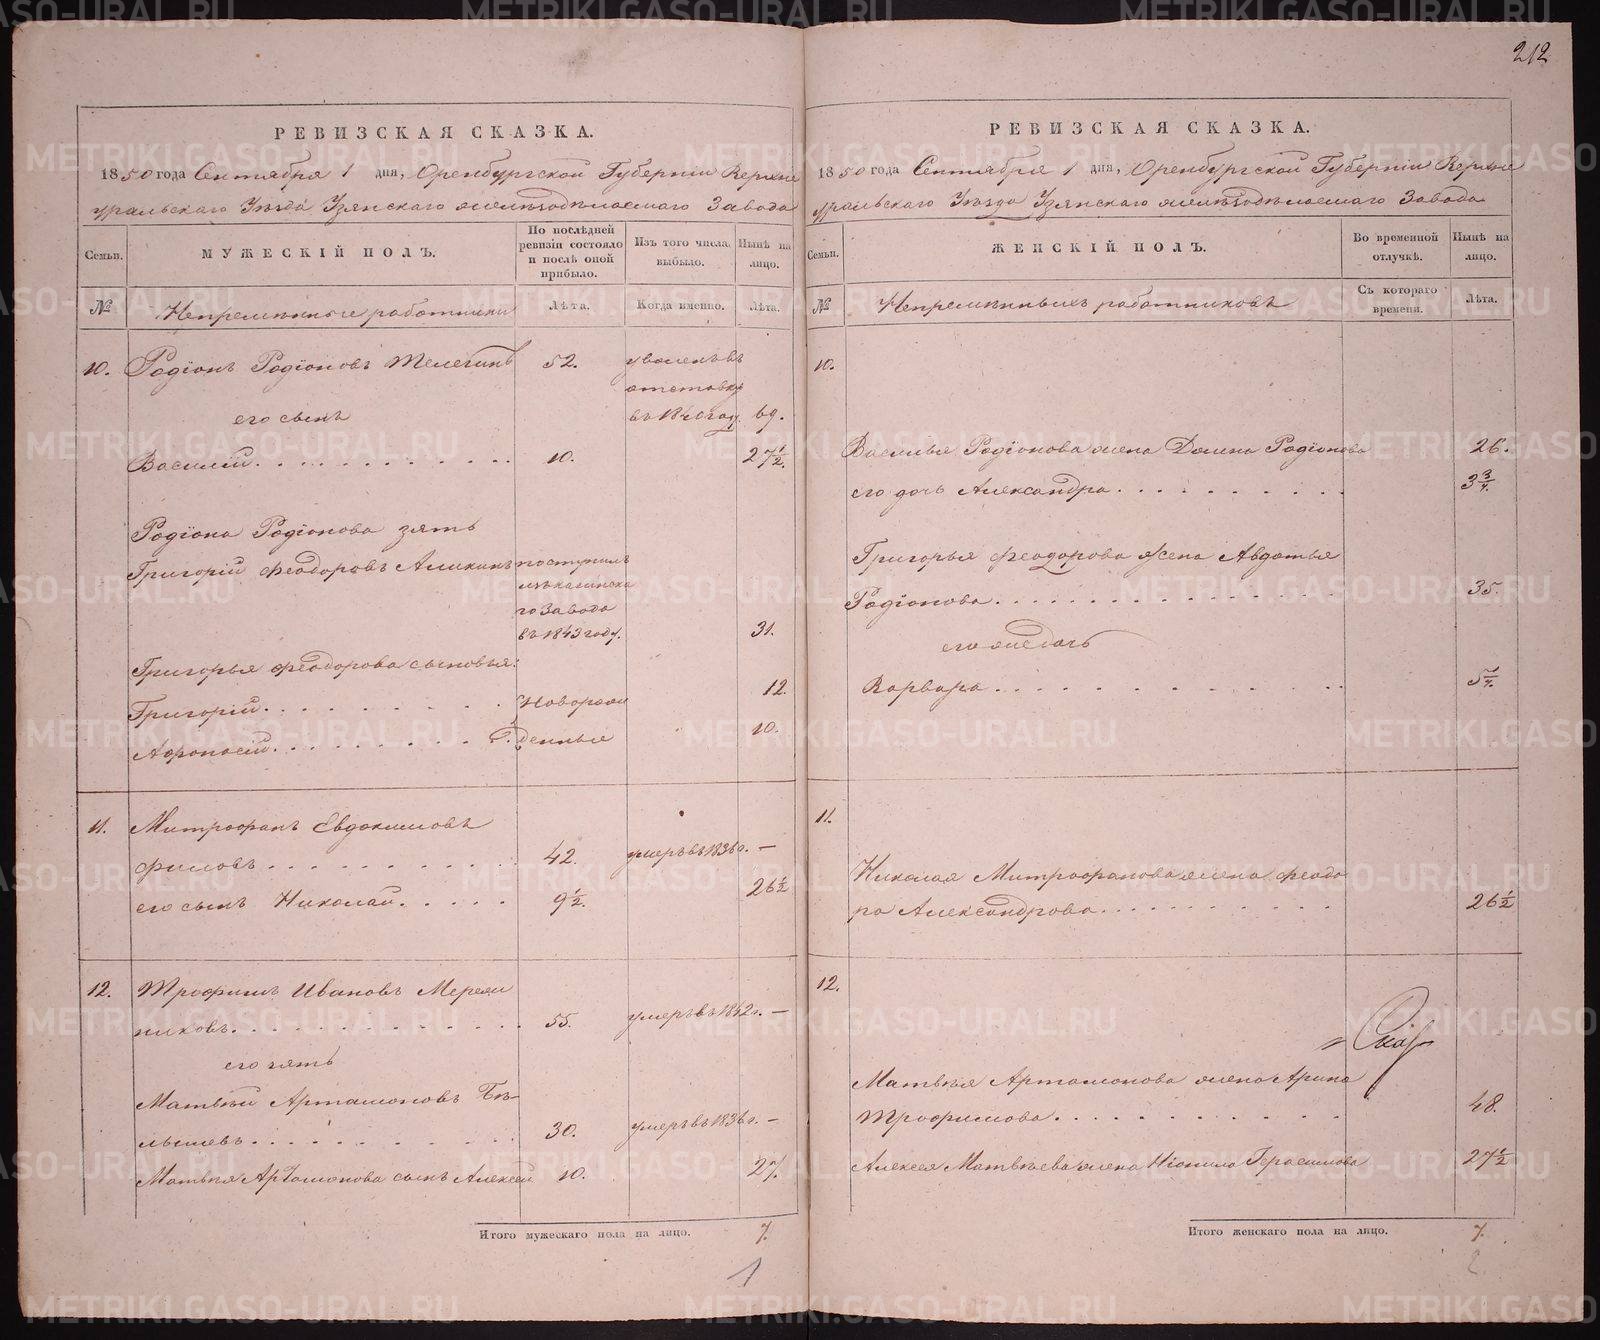 212
РЕВИЗСКАЯ СКАЗКА.
1850 года Сентября 1 дня, Оренбургской Губерніи Верхне
уральскаго Уѣзда Узянскаго желѣзодѣлаемаго Завода
Семьи.
МУЖЕСКІЙ ПОЛЪ.
По послѣдней ревизіи состояло и послѣ оной прибыло.
Изъ того числа выбыло.
Нынѣ на лицо.
№
Непремѣнные работники
Лѣта.
Когда именно.
Лѣта.
10. Родіонъ Родіоновъ Телегинъ 52. уволенъ въ
отставку
его сынъ въ 1840 году. 69.
Василій 10. 27 1/2.
Родіона Родіонова зять
Григорій Феодоровъ Аликинъ поступилъ
изъ кагинска
го Завода
въ 1843 году. 31.
Григорья Феодорова сыновья:
Григорій Новорож 12.
Афонасій денные 10.
11. Митрофанъ Евдокимовъ
Филовъ 42. умеръ въ 1836 г. —
его сынъ Николай 9 1/2. 26 1/2
12. Трофимъ Ивановъ Мереж
никовъ 55. умеръ въ 1842 г. —
его зять
Матвѣй Артамоновъ Бѣ-
лышевъ 30. умеръ въ 1836 г. —
Матвѣя Артамонова сынъ Алексей 10. 27.
Итого мужескаго пола на лицо. 7.
1
РЕВИЗСКАЯ СКАЗКА.
1850 года Сентября 1 дня, Оренбургской Губерніи Верхне
уральскаго Уѣзда Узянскаго желѣзодѣлаемаго Завода
Семьи.
ЖЕНСКІЙ ПОЛЪ.
Во временной отлучкѣ.
Нынѣ на лицо.
№
Непремѣнныхъ работниковъ
Съ котораго времени.
Лѣта.
10.
Василья Родіонова жена Домна Родіонова 26.
его дочь Александра 3 3/4.
Григорья Феодорова жена Авдотья
Родіонова 35.
его же дочь
Варвара 5 1/4.
11.
Николая Митрофанова жена Феодо
ра Александрова 26 1/2
12.
Матвѣя Артамонова жена Арина
Трофимова 48.
Алексея Матвѣева жена Неонила Герасимова 27 1/2
Итого женскаго пола на лицо. 7.
2
METRIKI.GASO-URAL.RU